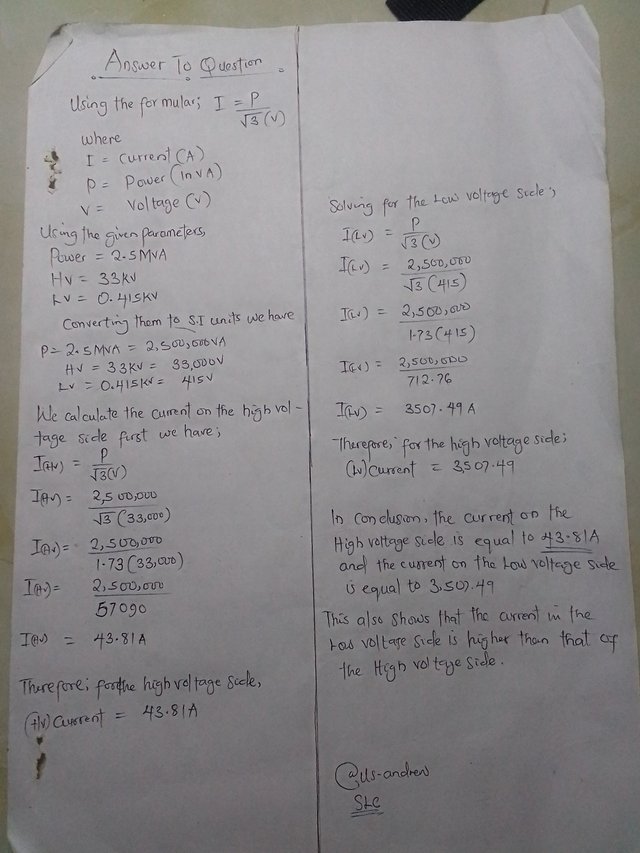 Answer To Question
Using the formular; I = P
√3 (V)
where
I = current (A)
P = Power (In VA)
V = Voltage (V)
Using the given parameters,
Power = 2.5MVA
HV = 33KV
LV = 0.415KV
Converting them to S.I units we have
P = 2.5MVA = 2,500,000VA
HV = 33KV = 33,000V
LV = 0.415KV = 415V
We calculate the current on the high vol-
tage side first we have;
I(HV) = P
√3(V)
I(HV) = 2,500,000
√3 (33,000)
I(HV) = 2,500,000
1.73 (33,000)
I(HV) = 2,500,000
57090
I(HV) = 43.81A
Therefore; for the high voltage side,
(HV) Current = 43.81A
Solving for the Low voltage side;
I(LV) = P
√3 (V)
I(LV) = 2,500,000
√3 (415)
I(LV) = 2,500,000
1.73 (415)
I(LV) = 2,500,000
712.76
I(LV) = 3507.49 A
Therefore, for the high voltage side;
(LV) Current = 3,507.49
In Conclusion, the current on the
High voltage side is equal to 43.81A
and the current on the Low voltage side
is equal to 3,507.49
This also shows that the current in the
Low voltage side is higher than that of
the High voltage side.
@us-andrew
SLC